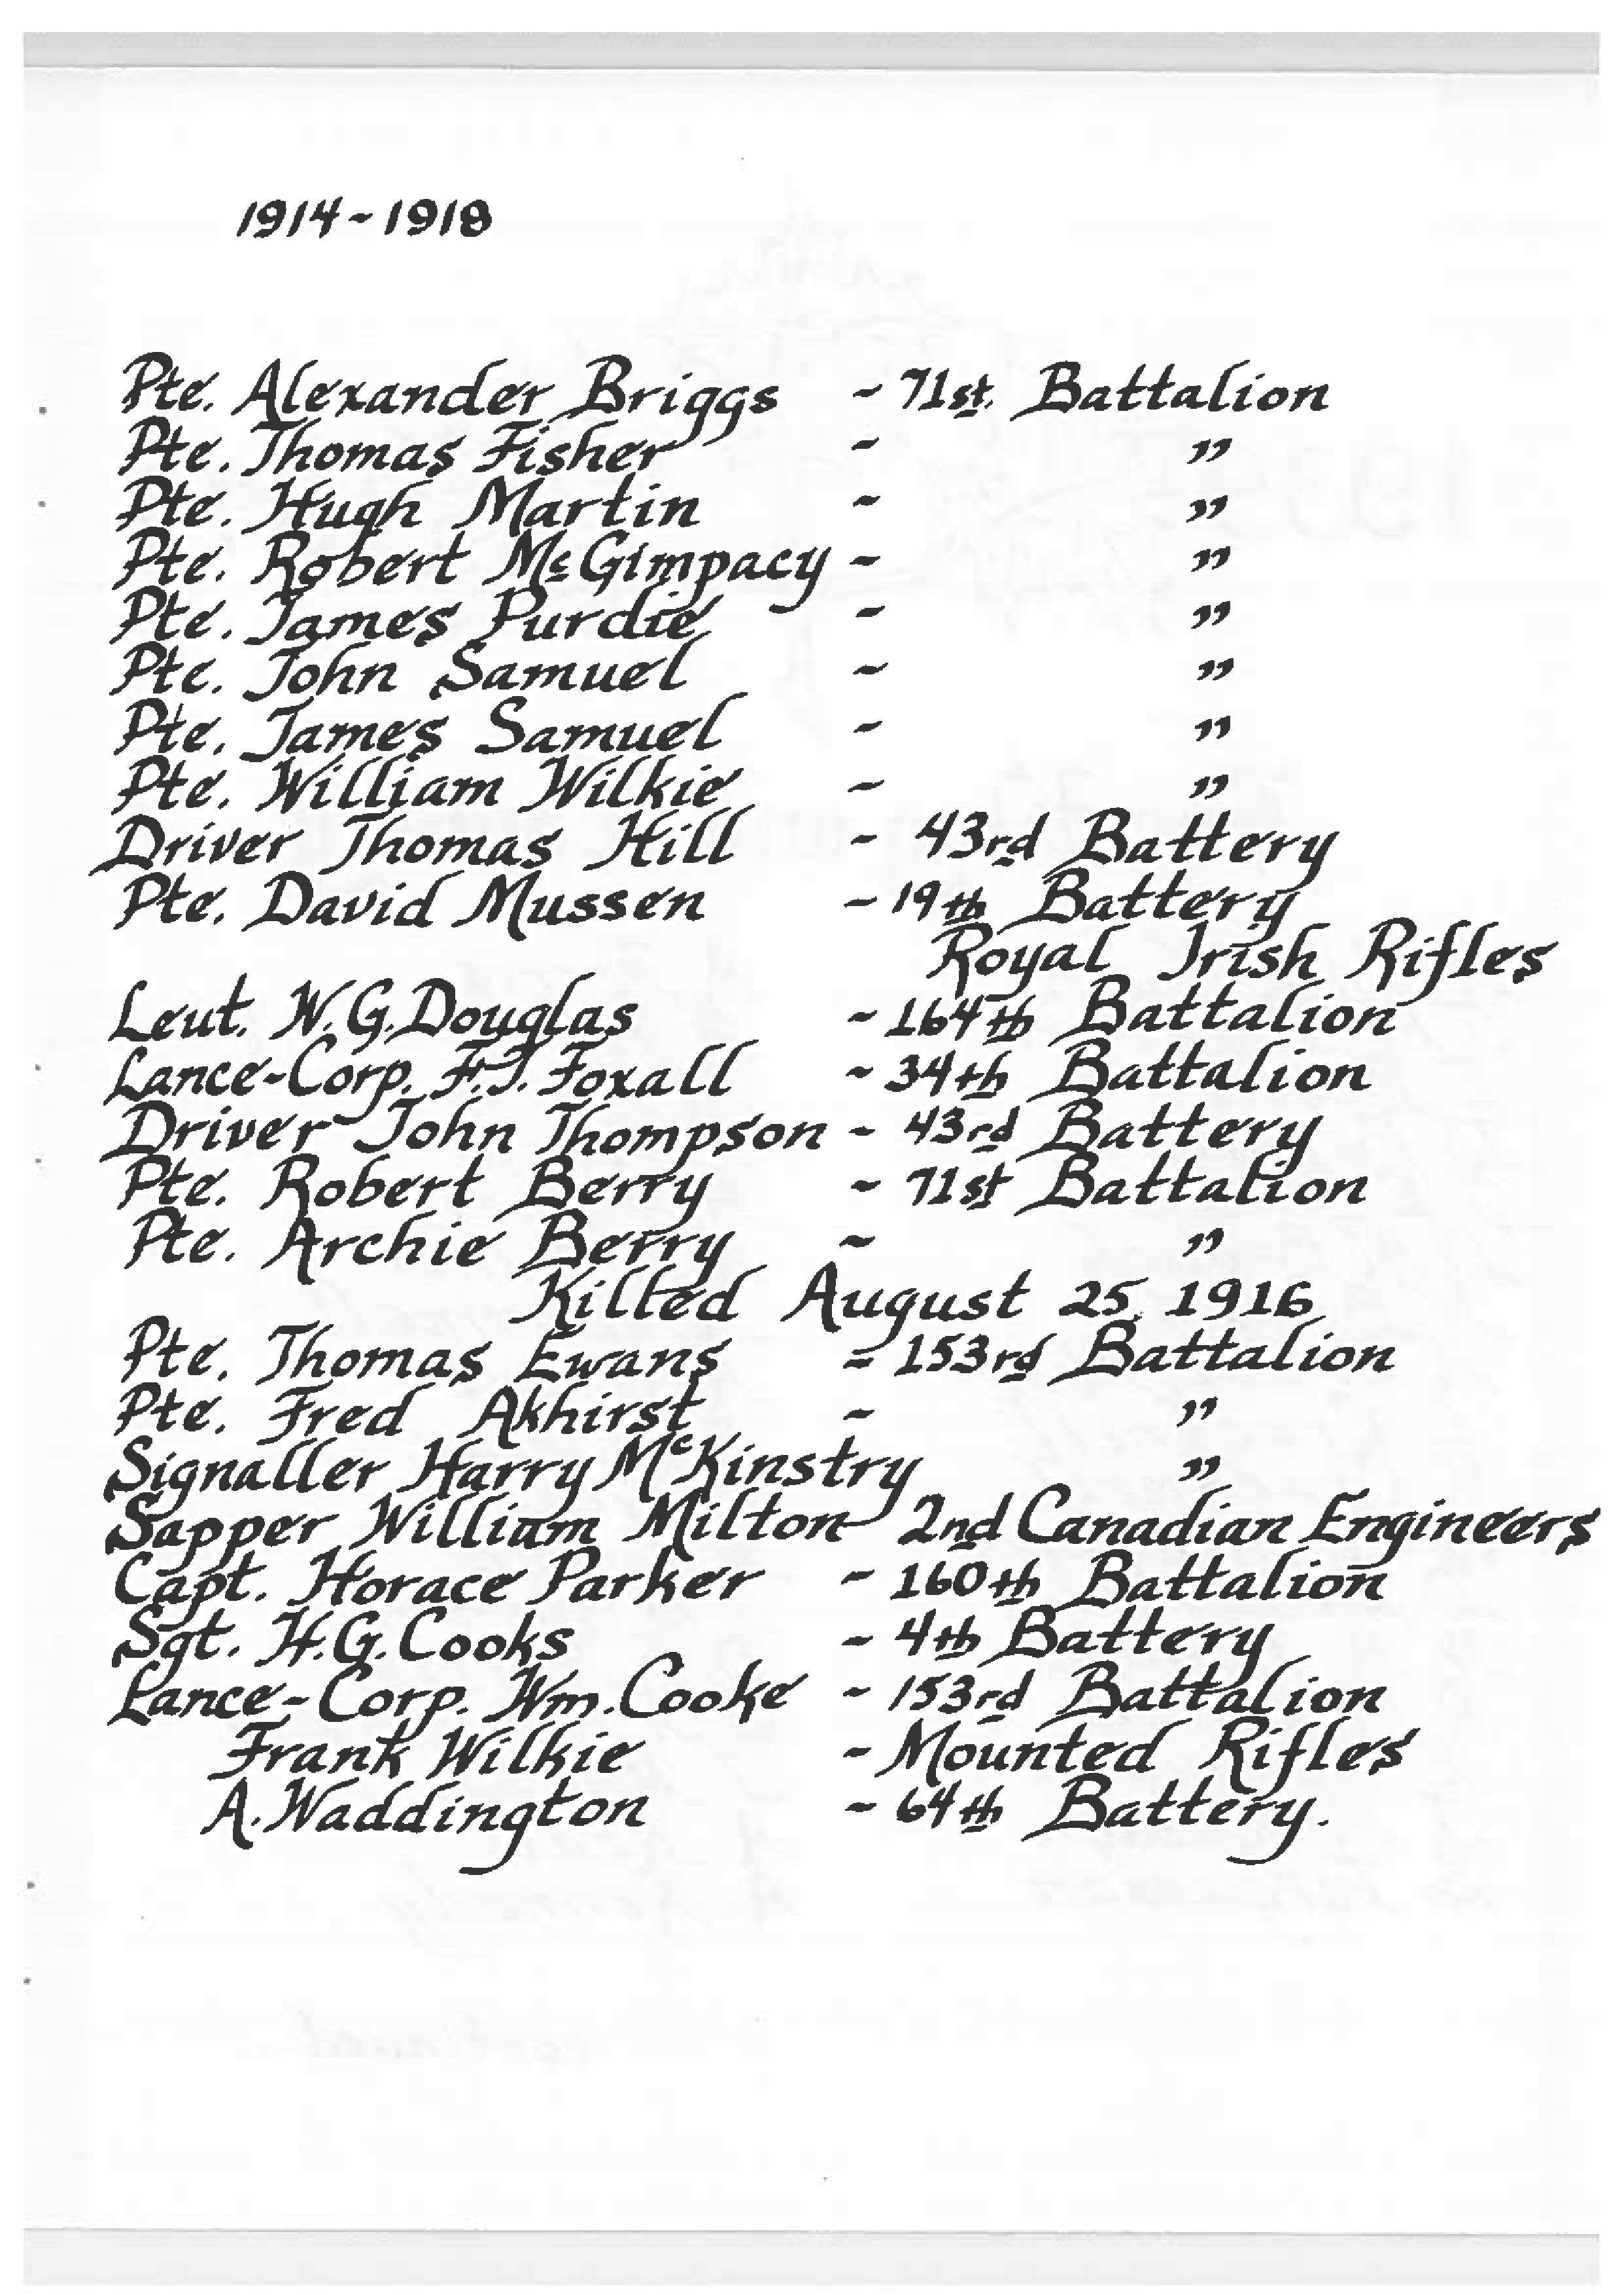 1914-1918
Pte. Alexander Briggs - 71st. Battalion
Pte. Thomas Fisher - "
Pte. Hugh Martin - "
Pte. Robert McGimpacy - "
Pte. James Purdie - "
Pte. John Samuel - "
Pte. James Samuel - "
Pte. William Wilkie - "
Driver Thomas Hill - 43rd Battery
Pte. David Mussen - 19th Battery
Royal Irish Rifles
Leut. W.G. Douglas - 164th Battalion
Lance-Corp. F.J. Foxall - 34th Battalion
Driver John Thompson - 43rd Battery
Pte. Robert Berry - 71st Battalion
Pte. Archie Berry - "
Killed August 25, 1916
Pte. Thomas Ewans = 153rd Battalion
Pte. Fred Akhirst - "
Signaller Harry McKinstry "
Sapper William Milton 2nd Canadian Engineers
Capt. Horace Parker - 160th Battalion
Sgt. H.G. Cooks - 4th Battery
Lance-Corp. Wm. Cooke - 153rd Battalion
Frank Wilkie - Mounted Rifles
A. Waddington - 64th Battery.